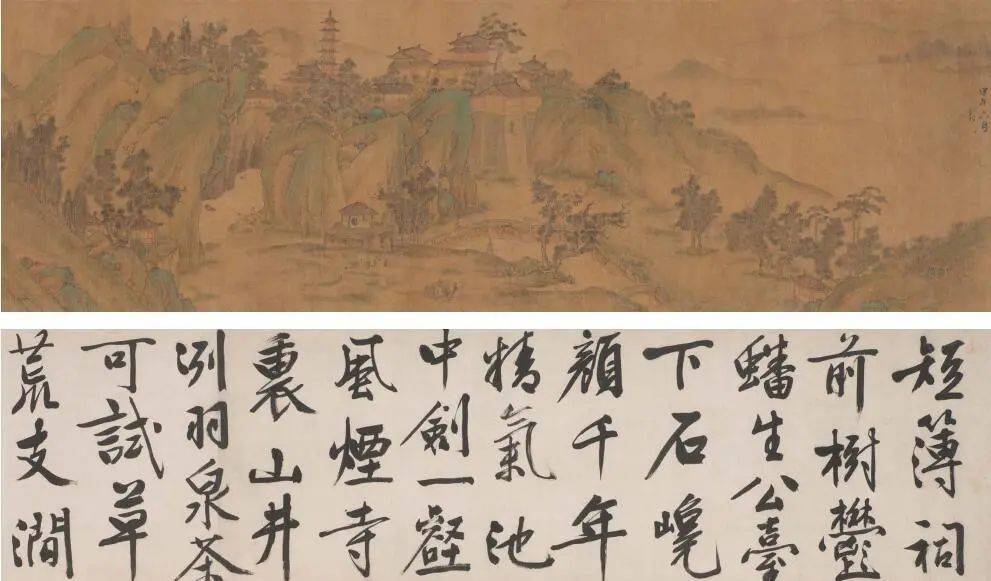 甲午六月
短簿祠
前樹鬱
蟠生公臺
下石
顏千年
精氣池
中劍一壑
風煙寺
裏山井
冽羽泉茶
可試草
荒支澗